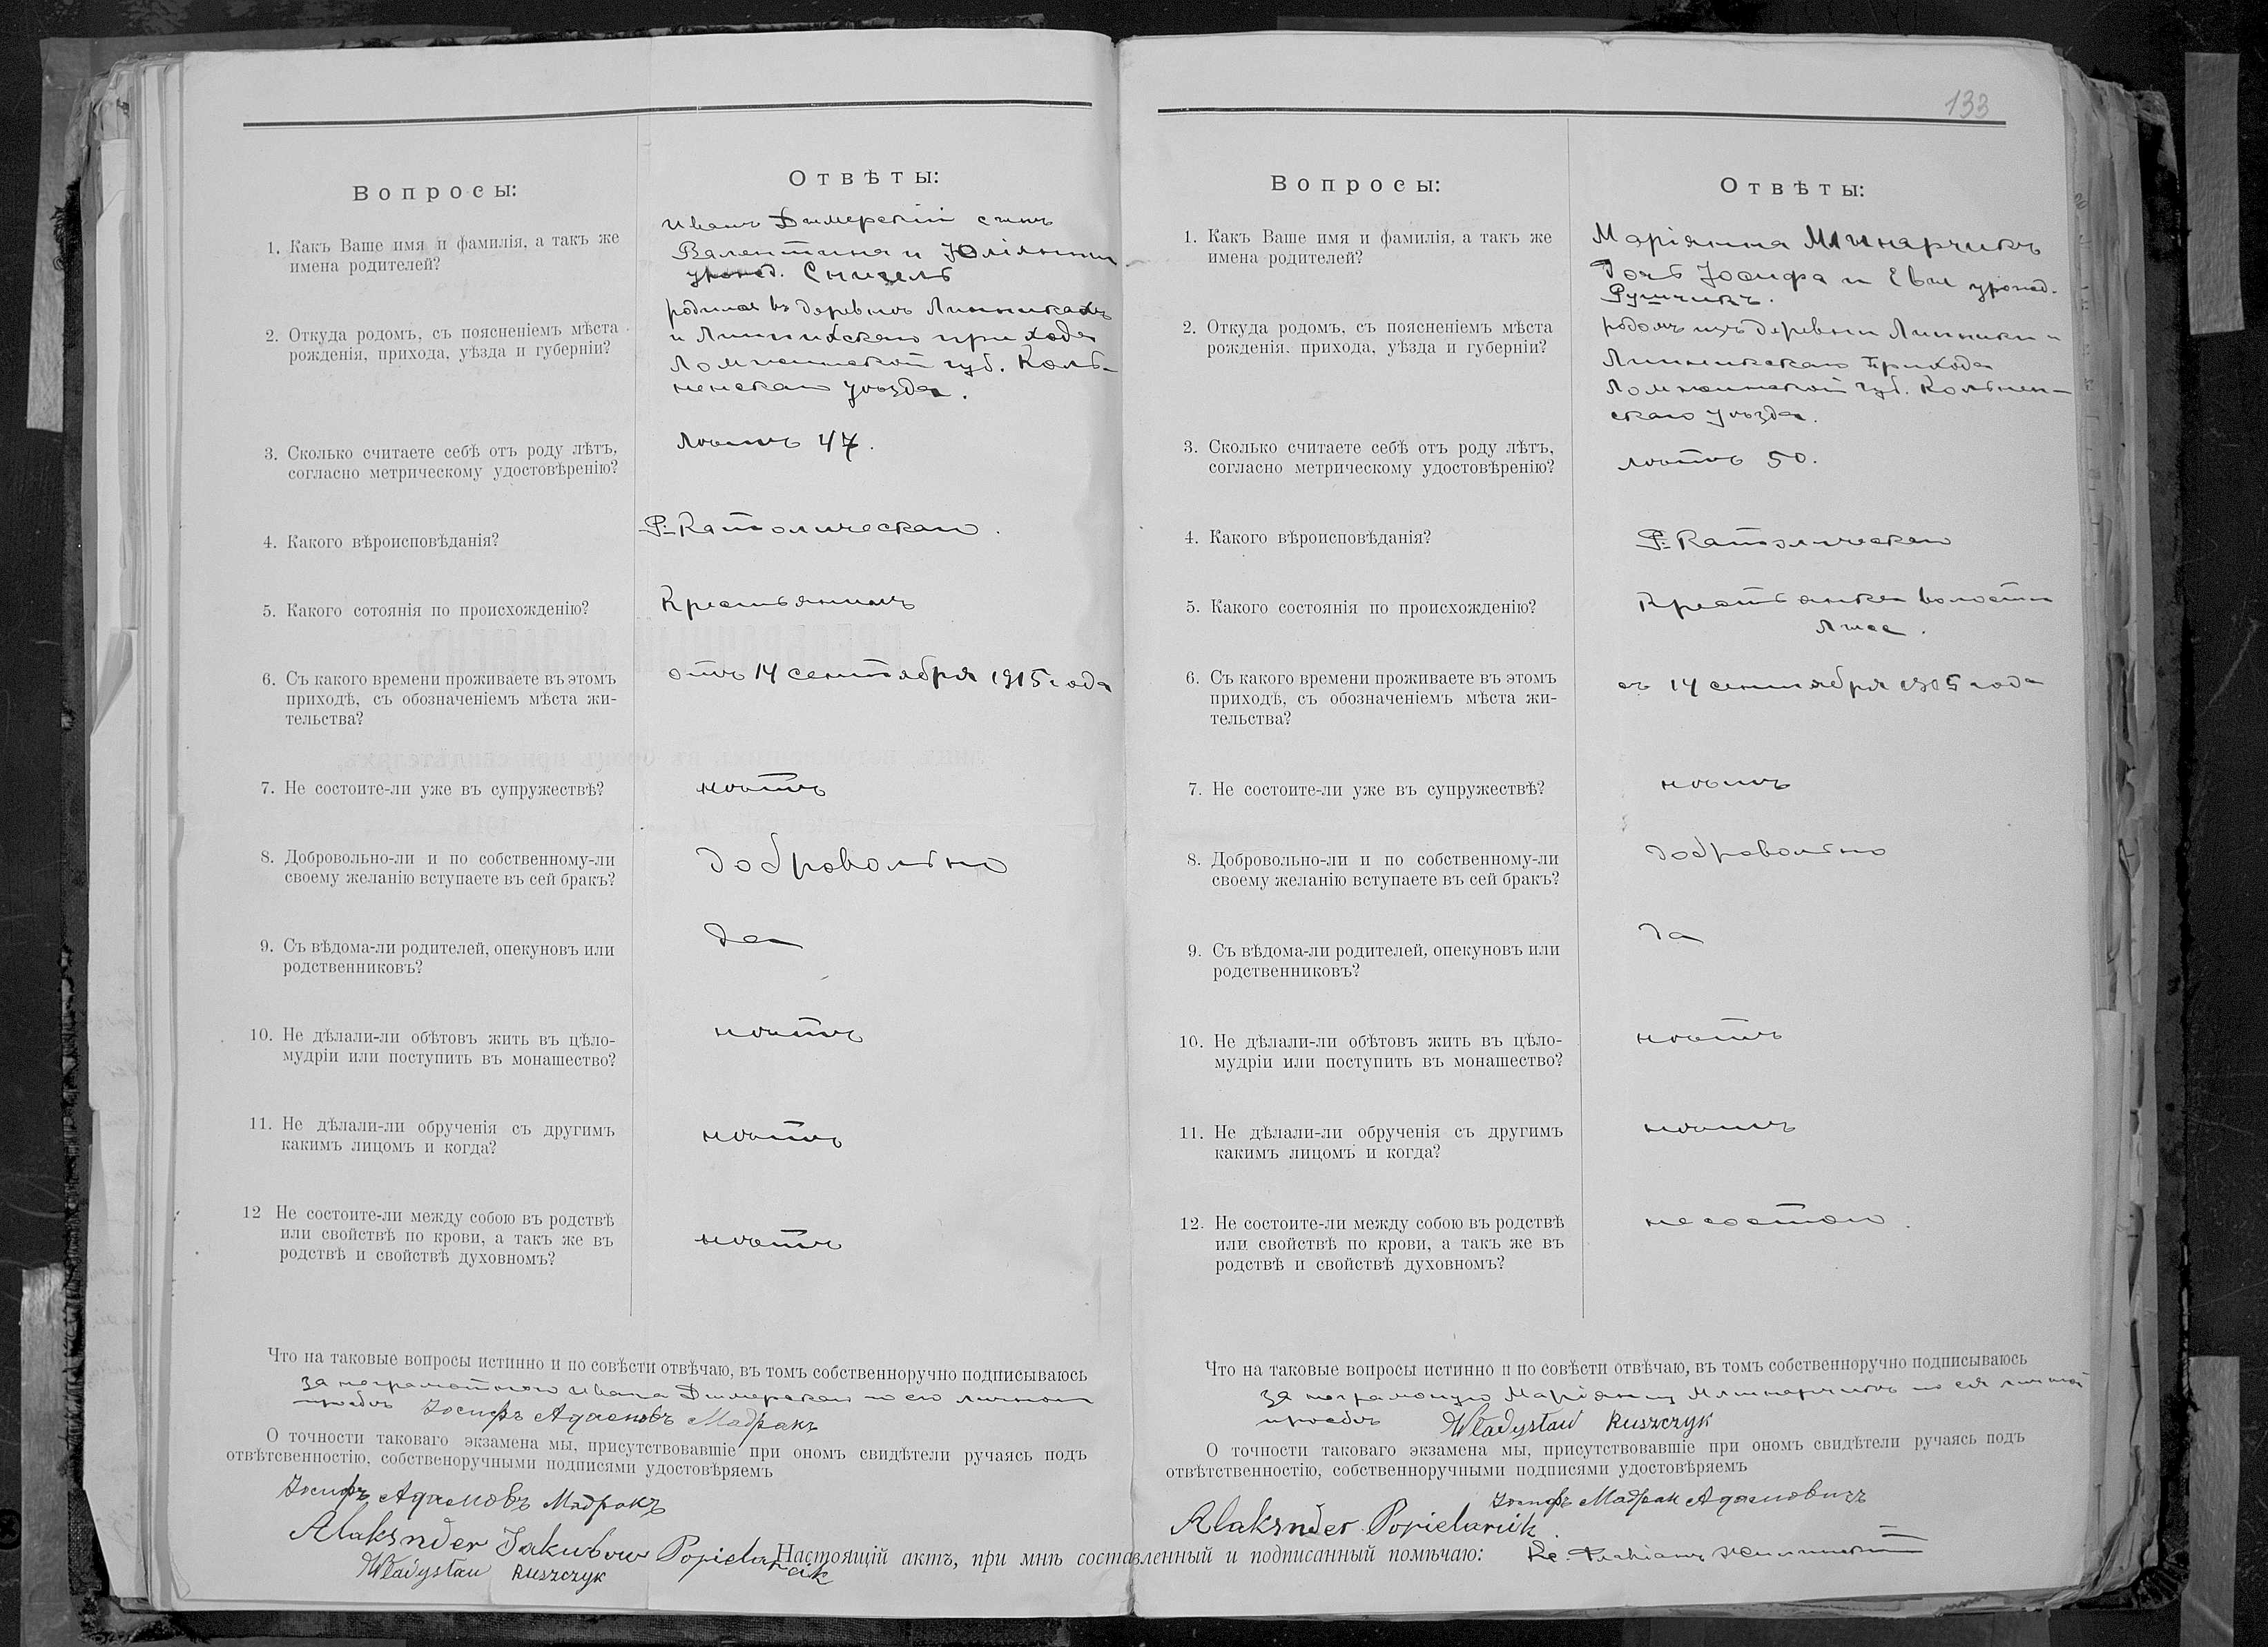 Вопросы:
Отвѣты:
1. Какъ Ваше имя и фамилія, а такъ же
имена родителей?
Иванъ Димерскій сынъ
Валентина и Юліянны
урожд. Снизель
2. Откуда родомъ, съ поясненіемъ мѣста
рожденія, прихода, уѣзда и губерніи?
родился въ деревнѣ Линникахъ
и Линникскаго прихода
Ломжинской губ. Коль-
ненскаго уѣзда.
3. Сколько считаете себѣ отъ роду лѣтъ,
согласно метрическому удостовѣренію?
лѣтъ 47.
4. Какого вѣроисповѣданія?
Р.-Католическаго.
5. Какого сотоянія по происхожденію?
Крестьянинъ
6. Съ какого времени проживаете въ этомъ
приходѣ, съ обозначеніемъ мѣста жи-
тельства?
отъ 14 сентября 1915 года
7. Не состоите-ли уже въ супружествѣ?
нѣтъ
8. Добровольно-ли и по собственному-ли
своему желанію вступаете въ сей бракъ?
добровольно
9. Съ вѣдома-ли родителей, опекуновъ или
родственниковъ?
да
10. Не дѣлали-ли обѣтовъ жить въ цѣло-
мудріи или поступить въ монашество?
нѣтъ
11. Не дѣлали-ли обрученія съ другимъ
какимъ лицомъ и когда?
нѣтъ
12 Не состоите-ли между собою въ родствѣ
или свойствѣ по крови, а такъ же въ
родствѣ и свойствѣ духовномъ?
нѣтъ
Что на таковые вопросы истинно и по совѣсти отвѣчаю, въ томъ собственноручно подписываюсь
за неграмотного Ивана Димерскаго по его личной
просьбѣ Іосифъ Адамовъ Мадракъ
О точности таковаго экзамена мы, присутствовавшіе при ономъ свидѣтели ручаясь подъ
отвѣтсвенностію, собственоручными подписями удостовѣряемъ
Іосифъ Адамовъ Мадракъ
Alaksnder Jakubow Popielarcik
Władysław Ruszczyk
133
Вопросы:
Отвѣты:
1. Какъ Ваше имя и фамилія, а так же
имена родителей?
Маріянна Млинарчикъ
дочь Іосифа и Евы урожд.
Рушчикъ.
2. Откуда родомъ, съ поясненіемъ мѣста
рожденія. прихода, уѣзда и губерніи?
родомъ изъ деревни Линники и
Линникскаго прихода
Ломжинской губ. Кольнен-
скаго уѣзда.
3. Сколько считаете себѣ отъ роду лѣтъ,
согласно метрическому удостовѣренію?
лѣтъ 50.
4. Какого вѣроисповѣданія?
Р.-Католическаго
5. Какого состоянія по происхожденію?
Крестьянка волости
6. Съ какого времени проживаете въ этомъ
приходѣ, съ обозначеніемъ мѣста жи-
тельства?
съ 14 сентября 1915 года
7. Не состоите-ли уже въ супружествѣ?
нѣтъ
8. Добровольно-ли и по собственному-ли
своему желанію вступаете въ сей бракъ?
добровольно
9. Съ вѣдома-ли родителей, опекуновъ или
родственниковъ?
да
10. Не дѣлали-ли обѣтовъ жить въ цѣло-
мудріи или поступить въ монашество?
нѣтъ
11. Не дѣлали-ли обрученія съ другимъ
какимъ лицомъ и когда?
нѣтъ
12. Не состоите-ли между собою въ родствѣ
или свойствѣ по крови, а такъ же въ
родствѣ и свойствѣ духовномъ?
не состою.
Что на таковые вопросы истинно и по совѣсти отвѣчаю, въ томъ собственноручно подписываюсь
за неграмотную Маріянну Млинарчикъ по ея личной
просьбѣ Władysław Ruszczyk
О точности таковаго экзамена мы, присутствовавшіе при ономъ свидѣтели ручаясь подъ
отвѣтственностію, собственноручными подписями удостовѣряемъ
Іосифъ Мадрак Адамовичъ
Alaksnder Popielarcik.
Настоящій актъ, при мнѣ составленный и подписанный помѣчаю: